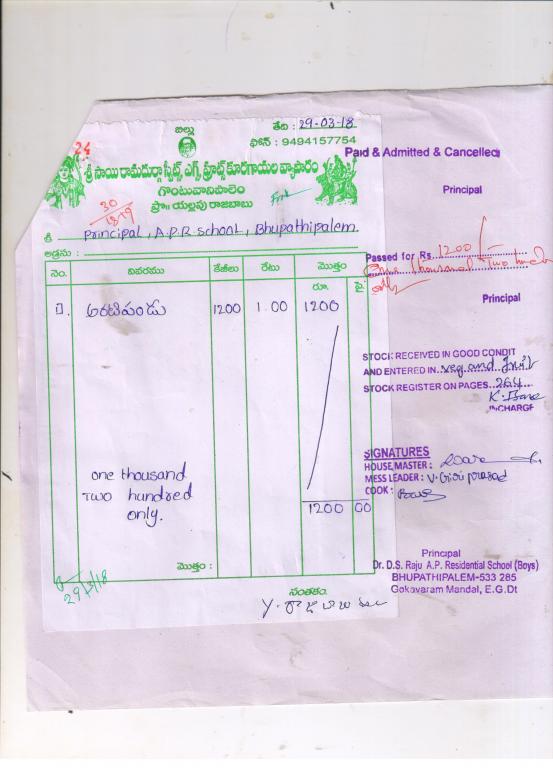 బిల్లు
తేది : 29-03-18
ఫోన్ : 9494157754
24
శ్రీ సాయి రామదుర్గా స్వీట్స్ ఎగ్స్ ఫ్రూట్స్ కూరగాయల వ్యాపారం
గొంటువానిపాలెం
ప్రొ॥ యల్లపు రాజబాబు
30
18-19
శ్రీ Principal, A.P.R School, Bhupathipalem.
అడ్రసు :
నెం. వివరము కేజీలు రేటు మొత్తం
రూ. పై.
1. అరటిపండు 1200 1.00 1200
one thousand
Two hundred
only.
1200 00
మొత్తం :
29/3/18
సంతకం
Y. రాజబాబు
Paid & Admitted & Cancelled
Principal
Passed for Rs. 1200/-
One thousand Two
only
Principal
STOCK RECEIVED IN GOOD CONDIT
AND ENTERED IN. veg and Fruit
STOCK REGISTER ON PAGES. 264
INCHARGE
SIGNATURES
HOUSE MASTER :
MESS LEADER : V. Giri prasad
COOK :
Principal
Dr. D.S. Raju A.P. Residential School (Boys)
BHUPATHIPALEM-533 285
Gokavaram Mandal, E.G.Dt